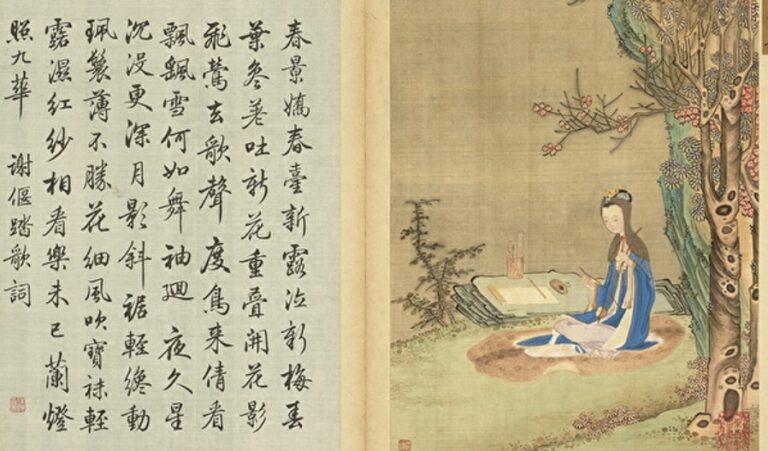 春景嬌春臺新露泣新梅春
葉參差吐新花重疊開花影
飛鶯去歌聲度鳥来倩看
飄颻雪何如舞袖廻夜久星
沉没更深月影斜裾輕纔動
珮鬟薄不勝花細風吹寶袜輕
露濕紅紗相看樂未已蘭燈
照九華 謝偃踏歌詞